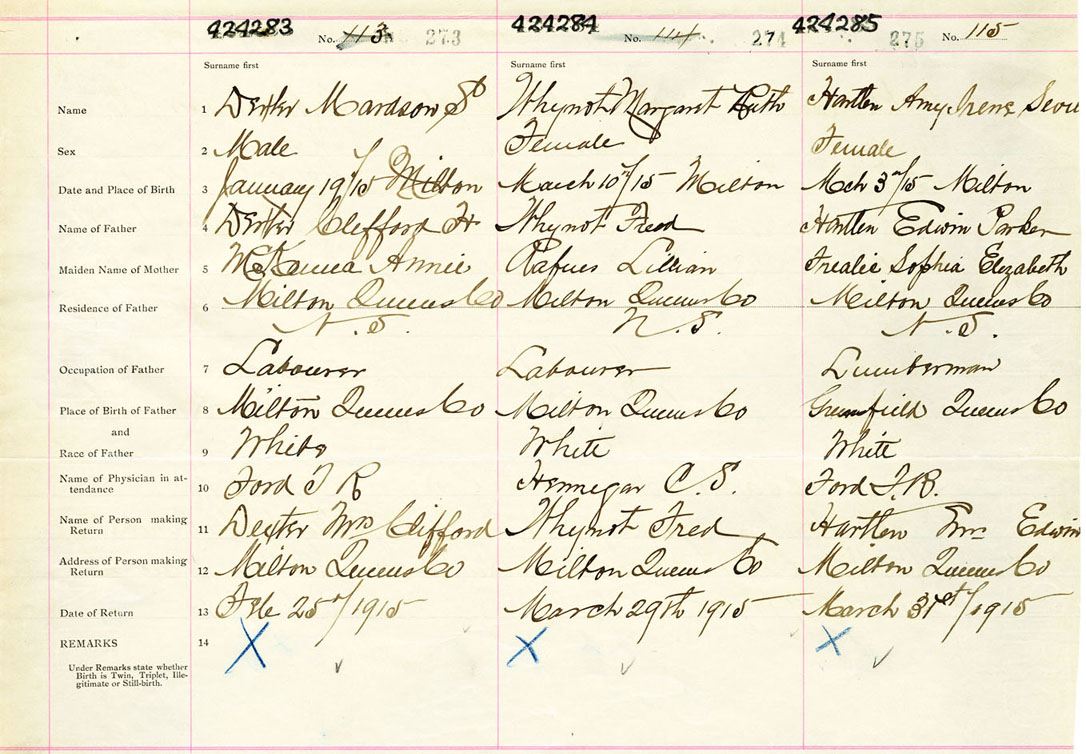 424283 No. 113 273 424284 No. 114 274 424285 275 No. 115
Surname first Surname first Surname first
Name 1 Dexter Whynot Margaret Ruth Hartlen Amy Irene
Sex 2 Male Female Female
Date and Place of Birth 3 January 19/15 Milton March 10th/15 Milton Mch 3rd/15 Milton
Name of Father 4 Dexter Clifford H Whynot Fred Hartlen Edwin Parker
Maiden Name of Mother 5 McKenna Annie Rafues Lillian Frealic Sophia Elizabeth
Residence of Father 6 Milton Queens Co Milton Queens Co Milton Queens Co
N. S. N. S. N. S.
Occupation of Father 7 Labourer Labourer Lumberman
Place of Birth of Father 8 Milton Queens Co Milton Queens Co Greenfield Queens Co
and
Race of Father 9 White White White
Name of Physician in at-
tendance 10 Ford T R Hennegar C. S. Ford T. R.
Name of Person making
Return 11 Dexter Mrs Clifford Whynot Fred Hartlen Mrs Edwin
Address of Person making
Return 12 Milton Queens Co Milton Queens Co Milton Queens Co
Date of Return 13 Feb 25th/1915 March 29th 1915 March 31st/1915
REMARKS 14 X X X
Under Remarks state whether
Birth is Twin, Triplet, Ille-
gitimate or Still-birth.